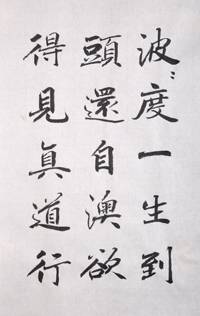 波〻度一生到
頭還自澳欲
得見真道行